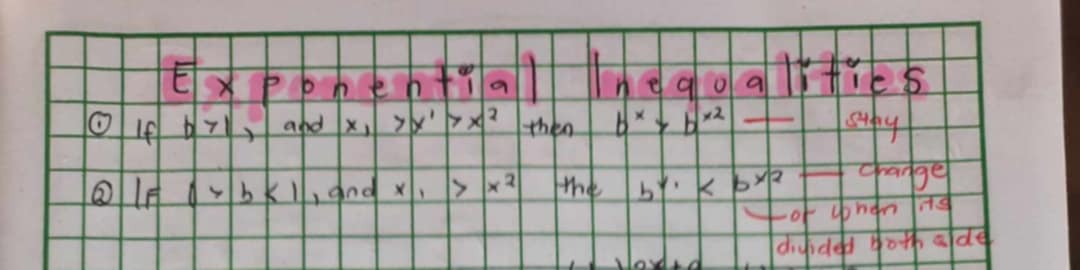 Exponential Inequalities
① If b>1, and x₁ >x' >x² then b^x > b^x2 — stay
② If 0 > b < 1, and x₁ > x² the b^x₁ < b^x2 — change
or when its
divided both side